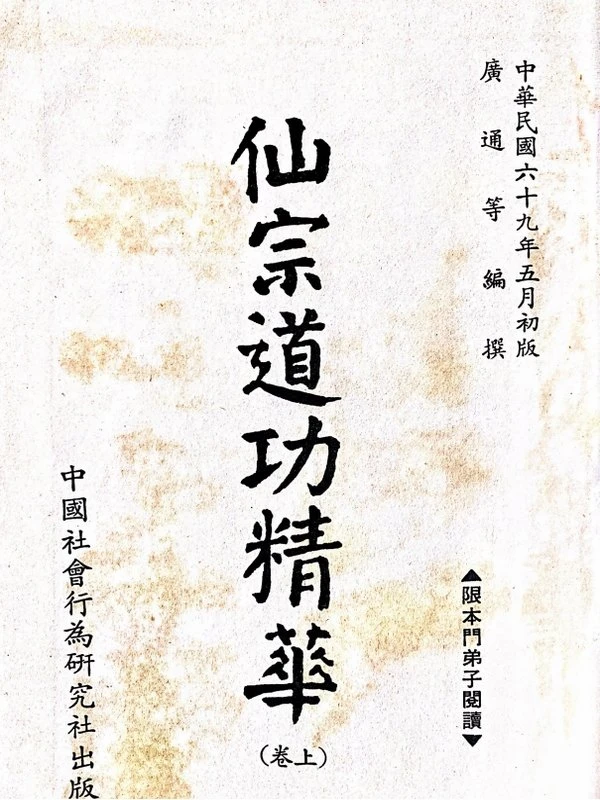 中華民國六十九年五月初版
廣通等編撰
▲限本門弟子閱讀▼
仙宗道功精華
（卷上）
中國社會行為研究社出版